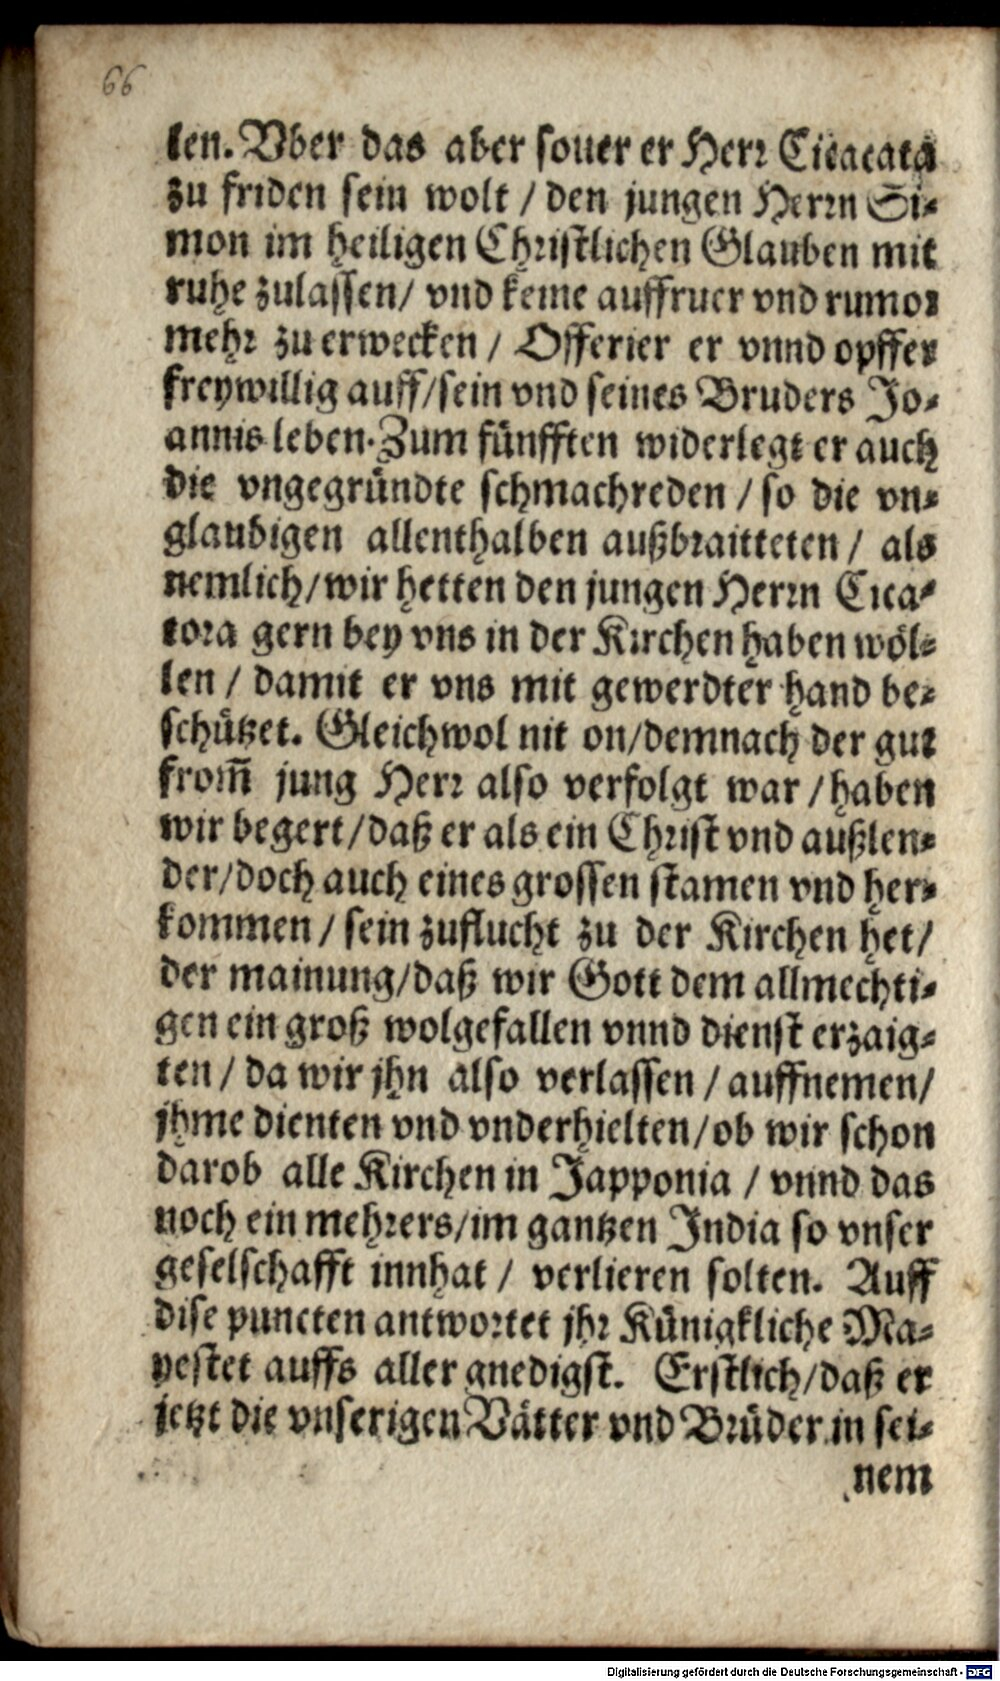 66
len. Vber das aber souer er Herr Cicacata
zu friden sein wolt / den jungen Herrn Si-
mon im heiligen Christlichen Glauben mit
ruhe zulassen/ vnd keine auffruer vnd rumor
mehr zu erwecken / Offerier er vnnd opffer
freywillig auff/sein vnd seines Bruders Jo-
annis leben. Zum fünfften widerlegt er auch
die vngegründte schmachreden / so die vn-
glaubigen allenthalben außbraitteten / als
nemlich/wir hetten den jungen Herrn Cica-
tora gern bey vns in der Kirchen haben wöl-
len / damit er vns mit gewerdter hand be-
schützet. Gleichwol nit on/demnach der gut
from̃ jung Herr also verfolgt war / haben
wir begert/daß er als ein Christ vnd außlen-
der/doch auch eines grossen stamen vnd her-
kommen / sein zuflucht zu der Kirchen het/
der mainung/daß wir Gott dem allmechti-
gen ein groß wolgefallen vnnd dienst erzaig-
ten / da wir jhn also verlassen / auffnemen/
jhme dienten vnd vnderhielten/ob wir schon
darob alle Kirchen in Japponia / vnnd das
noch ein mehrers/im gantzen India so vnser
geselschafft innhat / verlieren solten. Auff
dise puncten antwortet jhr Künigkliche Ma-
yestet auffs aller gnedigst. Erstlich/daß er
jetzt die vnserigen Vätter vnd Brüder in sei-
nem
Digitalisierung gefördert durch die Deutsche Forschungsgemeinschaft - DFG